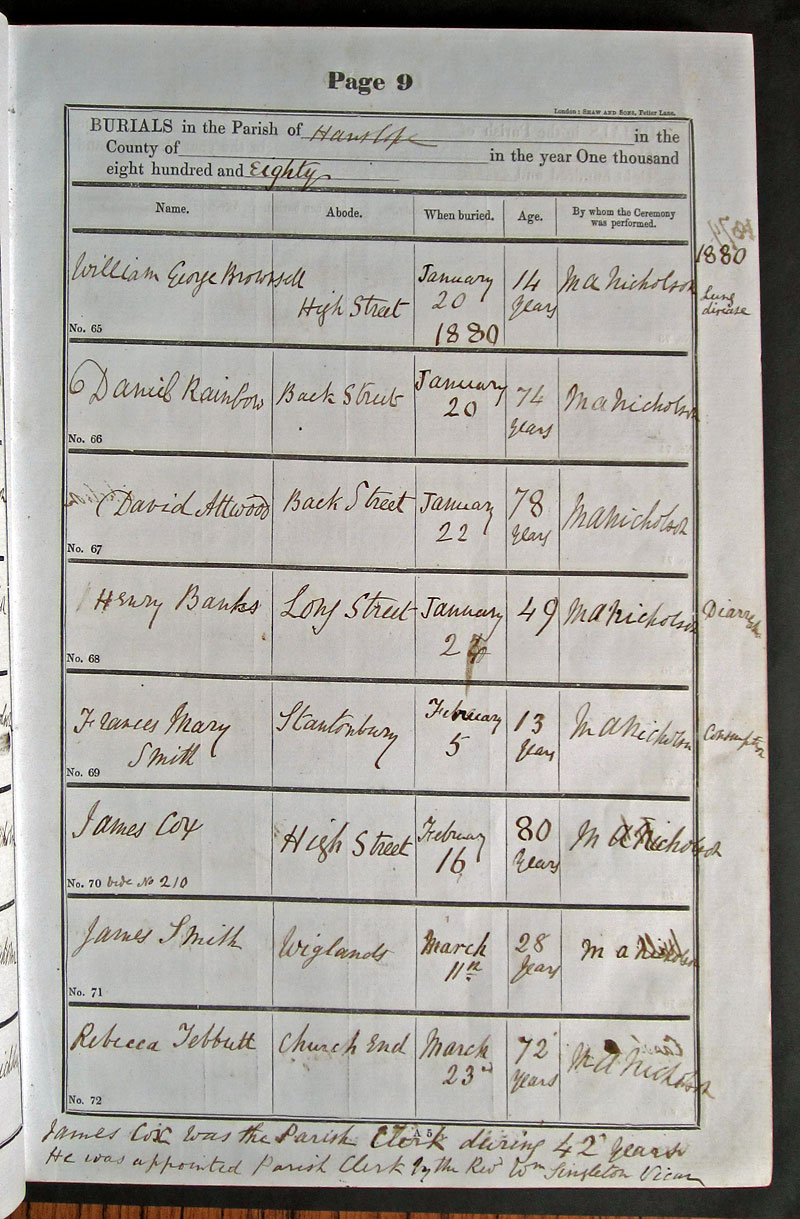 Page 9
London: SHAW AND SONS, Fetter Lane.
BURIALS in the Parish of Hanslope in the
County of in the year One thousand
eight hundred and Eighty
Name. Abode. When buried. Age. By whom the Ceremony was performed.
1880
William George Brownsell
High Street
January
20
1880
14
years
M A Nicholson
Lung
disease
No. 65
Daniel Rainbow
Back Street
January
20
74
years
M A Nicholson
No. 66
David Attwood
Back Street
January
22
78
years
M A Nicholson
No. 67
Henry Banks
Long Street
January
24
49
M A Nicholson
No. 68
Frances Mary
Smith
Stantonbury
February
5
13
years
M A Nicholson
Consumption
No. 69
James Cox
High Street
February
16
80
years
M A Nicholson
No. 70 vide No 210
James Smith
Wiglands
March
11th
28
years
M A Nicholson
No. 71
Rebecca Tebbutt
Church End
March
23rd
72
years
M A Nicholson
No. 72
A 5
James Cox was the Parish Clerk during 42 years
He was appointed Parish Clerk by the Revd Wm Singleton Vicar